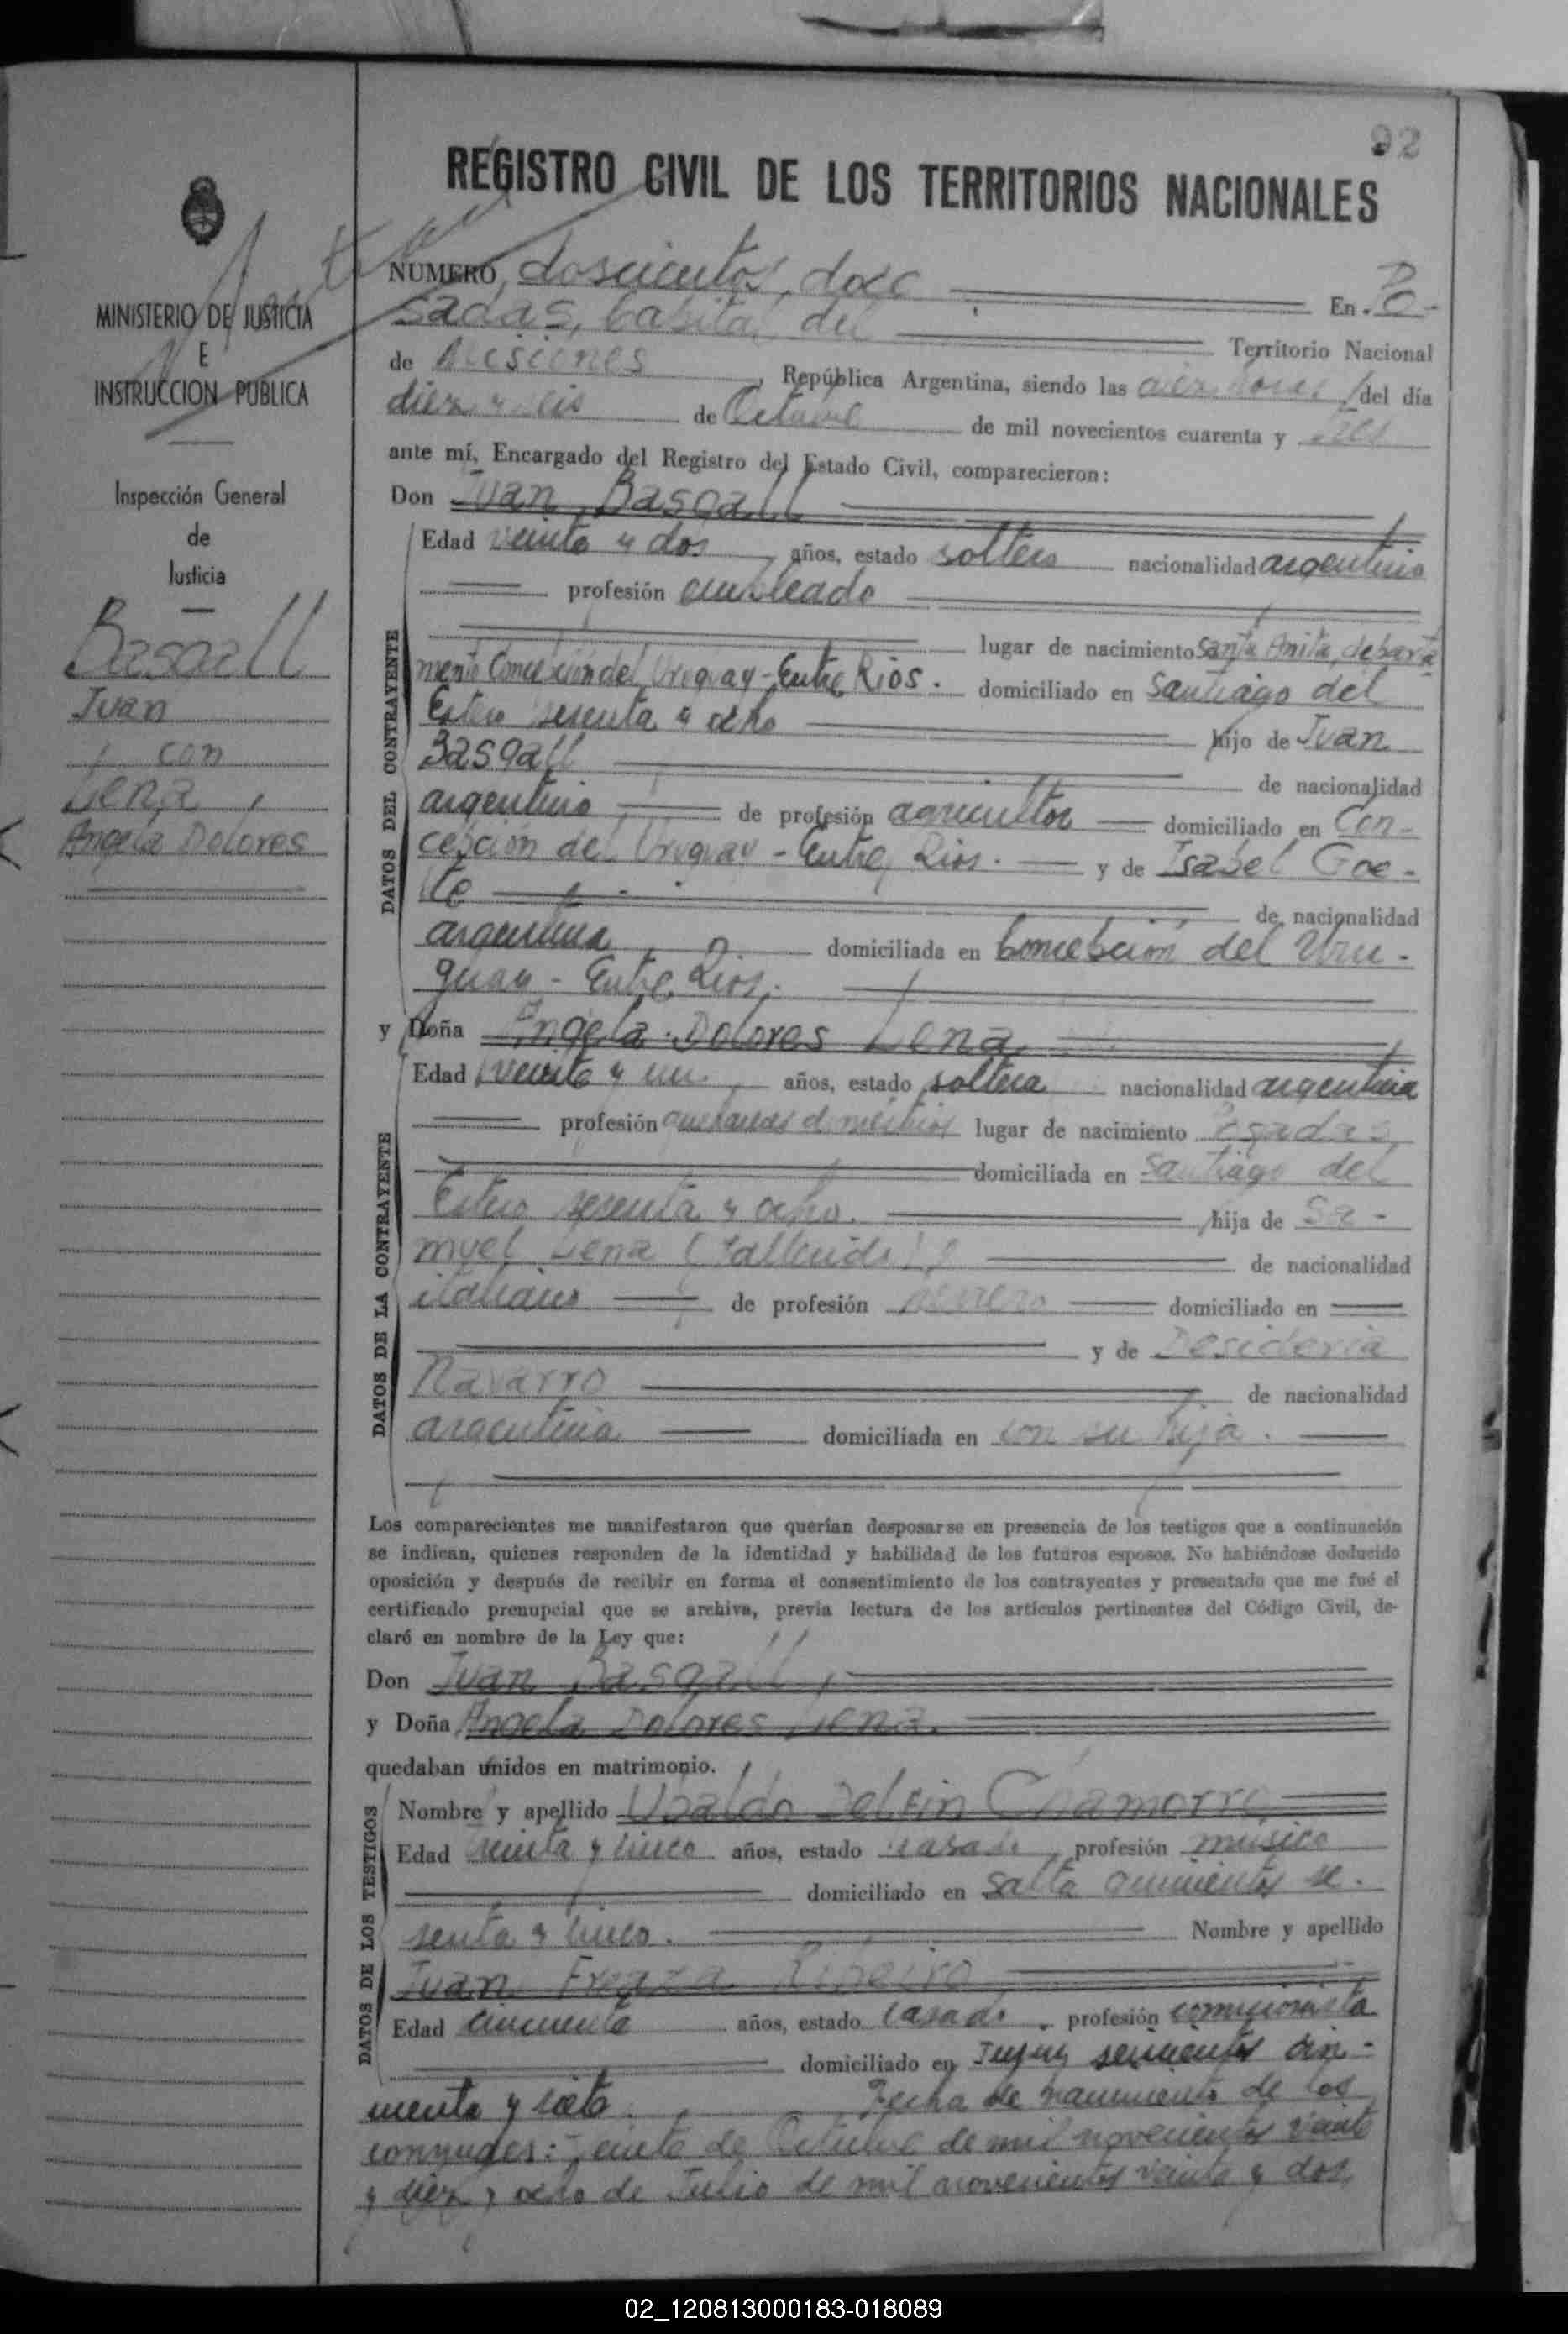 92
REGISTRO CIVIL DE LOS TERRITORIOS NACIONALES
MINISTERIO DE JUSTICIA
E
INSTRUCCION PUBLICA
Inspección General
de
Justicia
Basgall
Juan
con
Lena,
Angela Dolores
NUMERO doscientos doce En Po-
sadas, Capital del Territorio Nacional
de Misiones, República Argentina, siendo las diez horas del día
diez y seis de Octubre de mil novecientos cuarenta y tres
ante mí, Encargado del Registro del Estado Civil, comparecieron:
Don Juan Basgall
DATOS DEL CONTRAYENTE
Edad veinte y dos años, estado soltero nacionalidad argentino
profesión empleado
lugar de nacimiento Santa Anita, departa
mento Concepción del Uruguay - Entre Rios. domiciliado en Santiago del
Estero sesenta y ocho hijo de Juan
Basgall de nacionalidad
argentino de profesión agricultor domiciliado en Con-
cepción del Uruguay - Entre Rios. y de Isabel Goe-
tte de nacionalidad
argentina domiciliada en Concepción del Uru-
guay - Entre Rios.
y Doña Angela Dolores Lena
DATOS DE LA CONTRAYENTE
Edad veinte y un años, estado soltera nacionalidad argentina
profesión quehaceres domésticos lugar de nacimiento Posadas
domiciliada en Santiago del
Estero sesenta y ocho. hija de Sa-
muel Lena (fallecido) de nacionalidad
italiano de profesión herrero domiciliado en
y de Desideria
Navarro de nacionalidad
argentina domiciliada en con su hija.
Los comparecientes me manifestaron que querían desposarse en presencia de los testigos que a continuación
se indican, quienes responden de la identidad y habilidad de los futuros esposos. No habiéndose deducido
oposición y después de recibir en forma el consentimiento de los contrayentes y presentado que me fué el
certificado prenupcial que se archiva, previa lectura de los artículos pertinentes del Código Civil, de-
claré en nombre de la Ley que:
Don Juan Basgall,
y Doña Angela Dolores Lena.
quedaban unidos en matrimonio.
DATOS DE LOS TESTIGOS
Nombre y apellido Ubaldo Delfin Chamorro
Edad treinta y cinco años, estado casado, profesión músico
domiciliado en Salta quinientos se-
senta y cinco. Nombre y apellido
Juan Ribeiro
Edad cincuenta años, estado casado. profesión comisionista
domiciliado en Jujuy seiscientos cin-
cuenta y siete. Fecha de nacimiento de los
conyuges: de Octubre de mil novecientos veinte
y ocho de Julio de mil novecientos veinte y dos
02_120813000183-018089